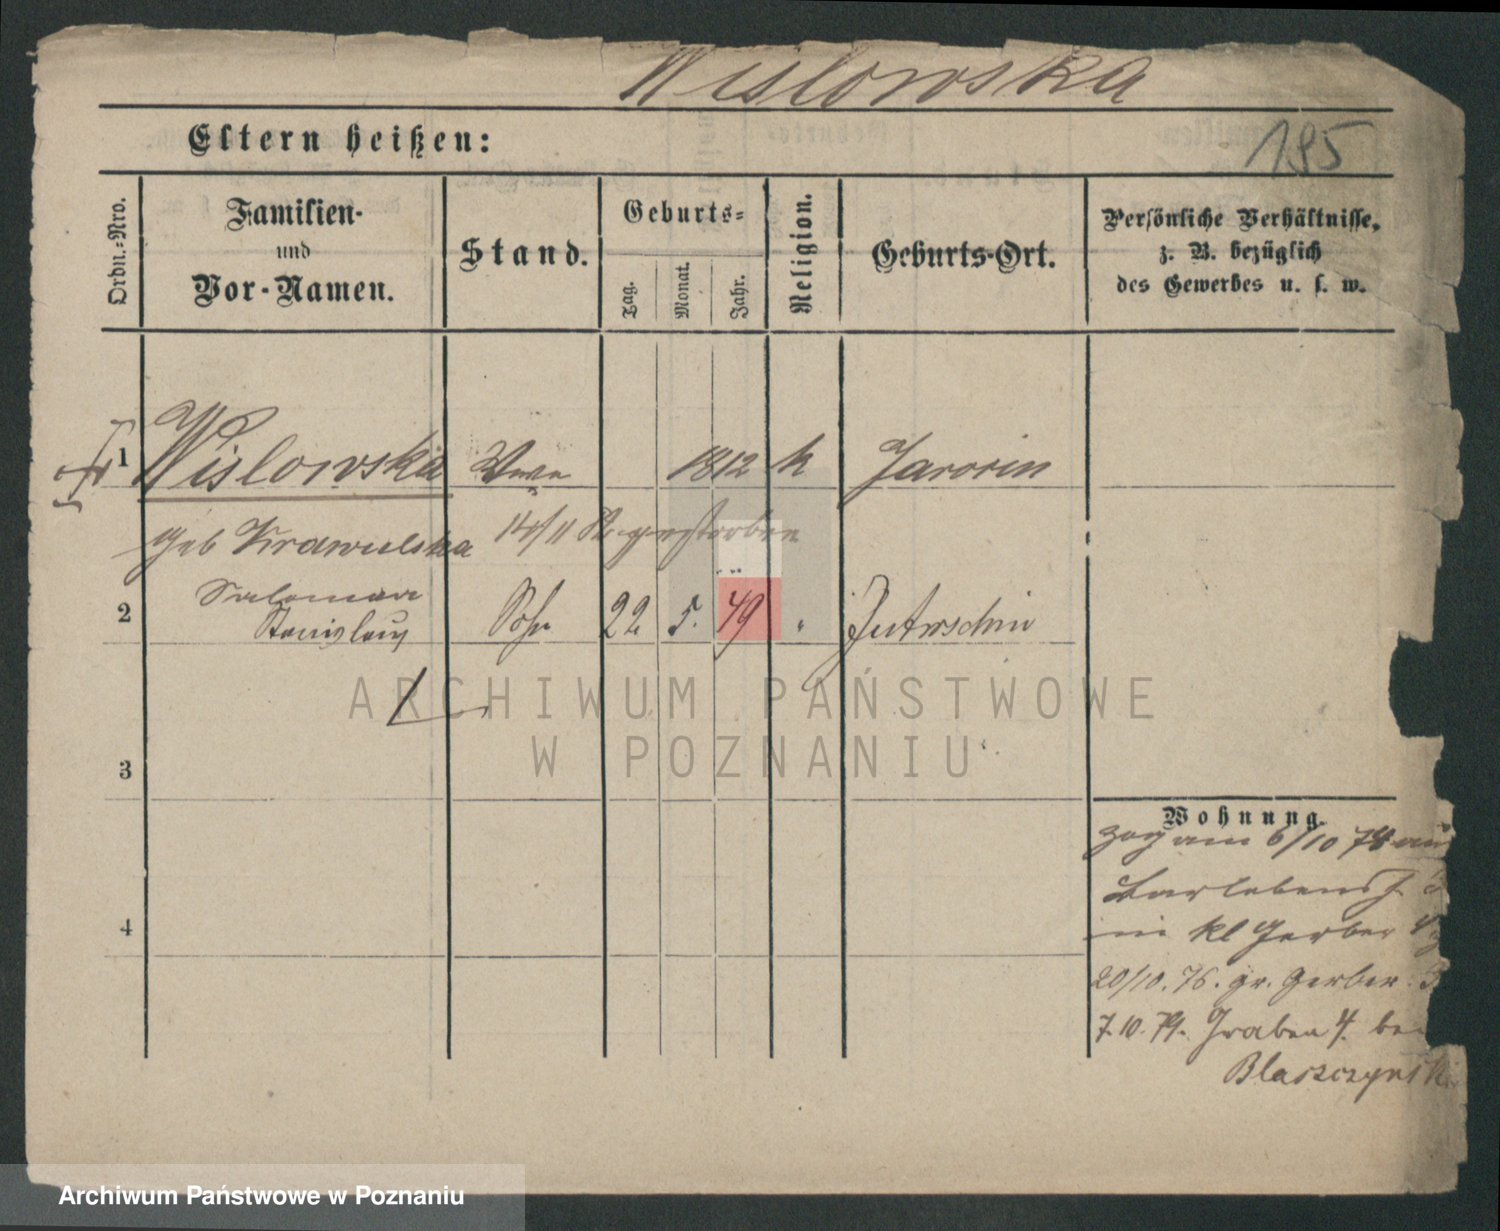 Wislowska
195
Eltern heißen:
Ordn.-Nro.
Familien-
und
Vor-Namen.
Stand.
Geburts-
Tag.
Monat.
Jahr.
Religion.
Geburts-Ort.
Persönliche Verhältnisse,
z. B. bezüglich
des Gewerbes u. s. w.
1 Wislowska Wwe 1812 k Jarocin
geb Krawulska 14/11 gestorben
Salomea
2 Stanislaus Sohn 22 5. 49 " Jutroschin
3
4
Wohnung.
zog am 6/10 74 aus
Barlebens
in kl Gerber
20/10. 76. gr. Gerber
7.10.79. Graben 4. bei
Blaszczynski
ARCHIWUM PAŃSTWOWE
W POZNANIU
Archiwum Państwowe w Poznaniu